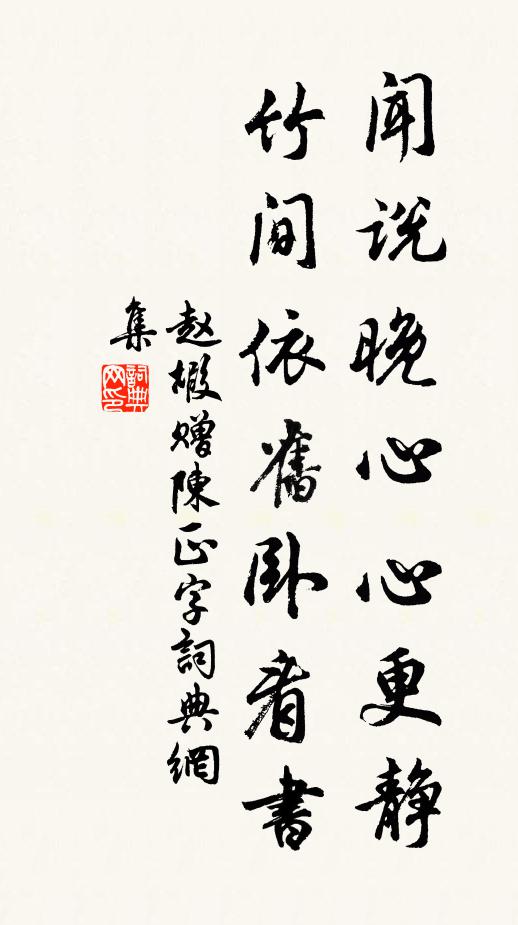 闻说晚心心更静
竹间依旧卧看书
赵嘏赠陈正字词典网
集
词典网印